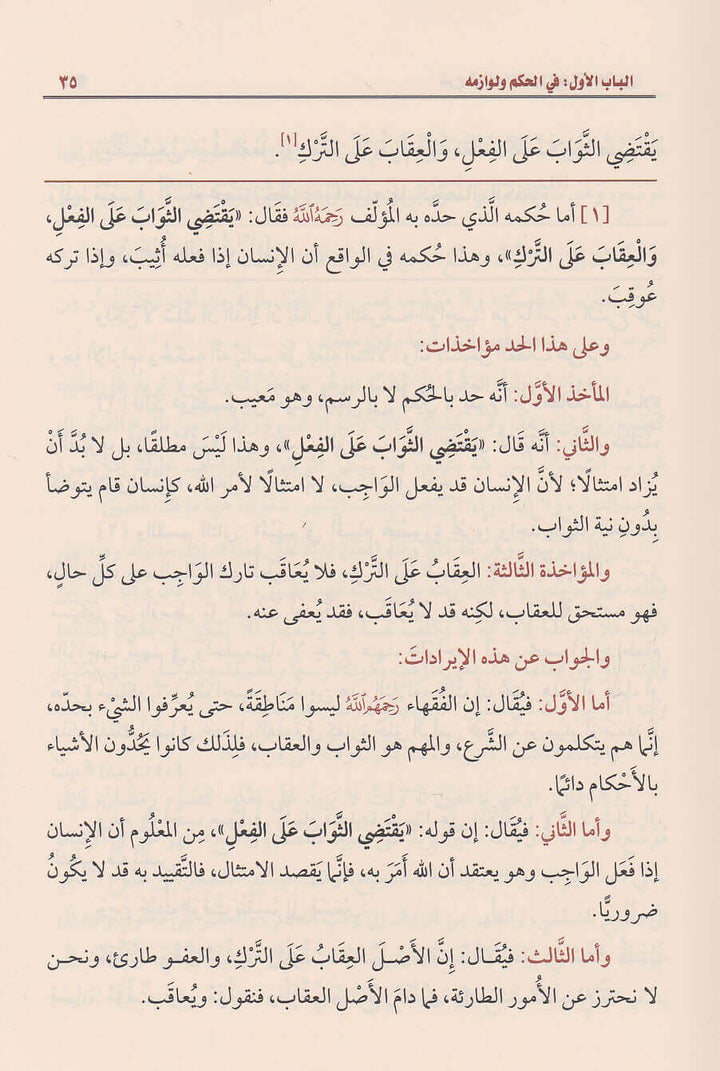 الباب الأول: في الحكم ولوازمه ٣٥
يَقْتَضِي الثَّوَابَ عَلَى الفِعْلِ، وَالْعِقَابَ عَلَى التَّرْكِ[١].
[١] أما حُكمه الَّذي حدَّه به المُؤلّف رَحِمَهُ اللَّهُ فقَال: «يَقْتَضِي الثَّوَابَ عَلَى الفِعْلِ،
وَالْعِقَابَ عَلَى التَّرْكِ»، وهذا حُكمه في الواقع أن الإِنسان إذا فعله أُثِيبَ، وإذا تركه
عُوقِبَ.
وعلى هذا الحد مؤاخذات:
المأخذ الأوَّل: أنَّه حد بالحُكم لا بالرسم، وهو مَعيب.
والثَّاني: أنَّه قَال: «يَقْتَضِي الثَّوَابَ عَلَى الفِعْلِ»، وهذا لَيْسَ مطلقًا، بل لا بُدَّ أَنْ
يُزاد امتثالًا؛ لأنَّ الإِنسان قد يفعل الوَاجِب، لا امتثالًا لأمر الله، كإِنسان قام يتوضأ
بِدُونِ نية الثواب.
والمؤاخذة الثَّالثة: العِقَابُ عَلَى التَّرْكِ، فلا يُعَاقَب تارك الوَاجب على كلِّ حالٍ،
فهو مستحق للعقاب، لكِنه قد لا يُعَاقَب، فقد يُعفى عنه.
والجواب عن هذه الإيراداتَ:
أما الأوَّل: فيُقَال: إن الفُقَهاء رَحِمَهُمُ اللَّهُ ليسوا مَنَاطِقَةً، حتى يُعرِّفوا الشيْء بحدّه،
إنَّما هم يتكلمون عن الشَّرع، والمهم هو الثواب والعقاب، فلِذَلك كانوا يَحُدُّون الأشياء
بالأَحْكام دائمًا.
وأما الثَّاني: فيُقَال: إن قوله: «يَقْتَضِي الثَّوَابَ عَلَى الفِعْلِ»، مِن المعْلُوم أن الإِنسان
إذا فَعَل الوَاجِب وهو يعتقد أن الله أَمَرَ به، فإنَّما يَقصد الامتثال، فالتَّقييد به قد لا يكُونُ
ضروريًّا.
وأما الثَّالث: فيُقَال: إنَّ الأَصْلَ العِقَابُ عَلَى التَّرْكِ، والعفو طارئ، ونحن
لا نحترز عن الأُمور الطارئة، فما دامَ الأَصْل العقاب، فنقول: ويُعاقَب.